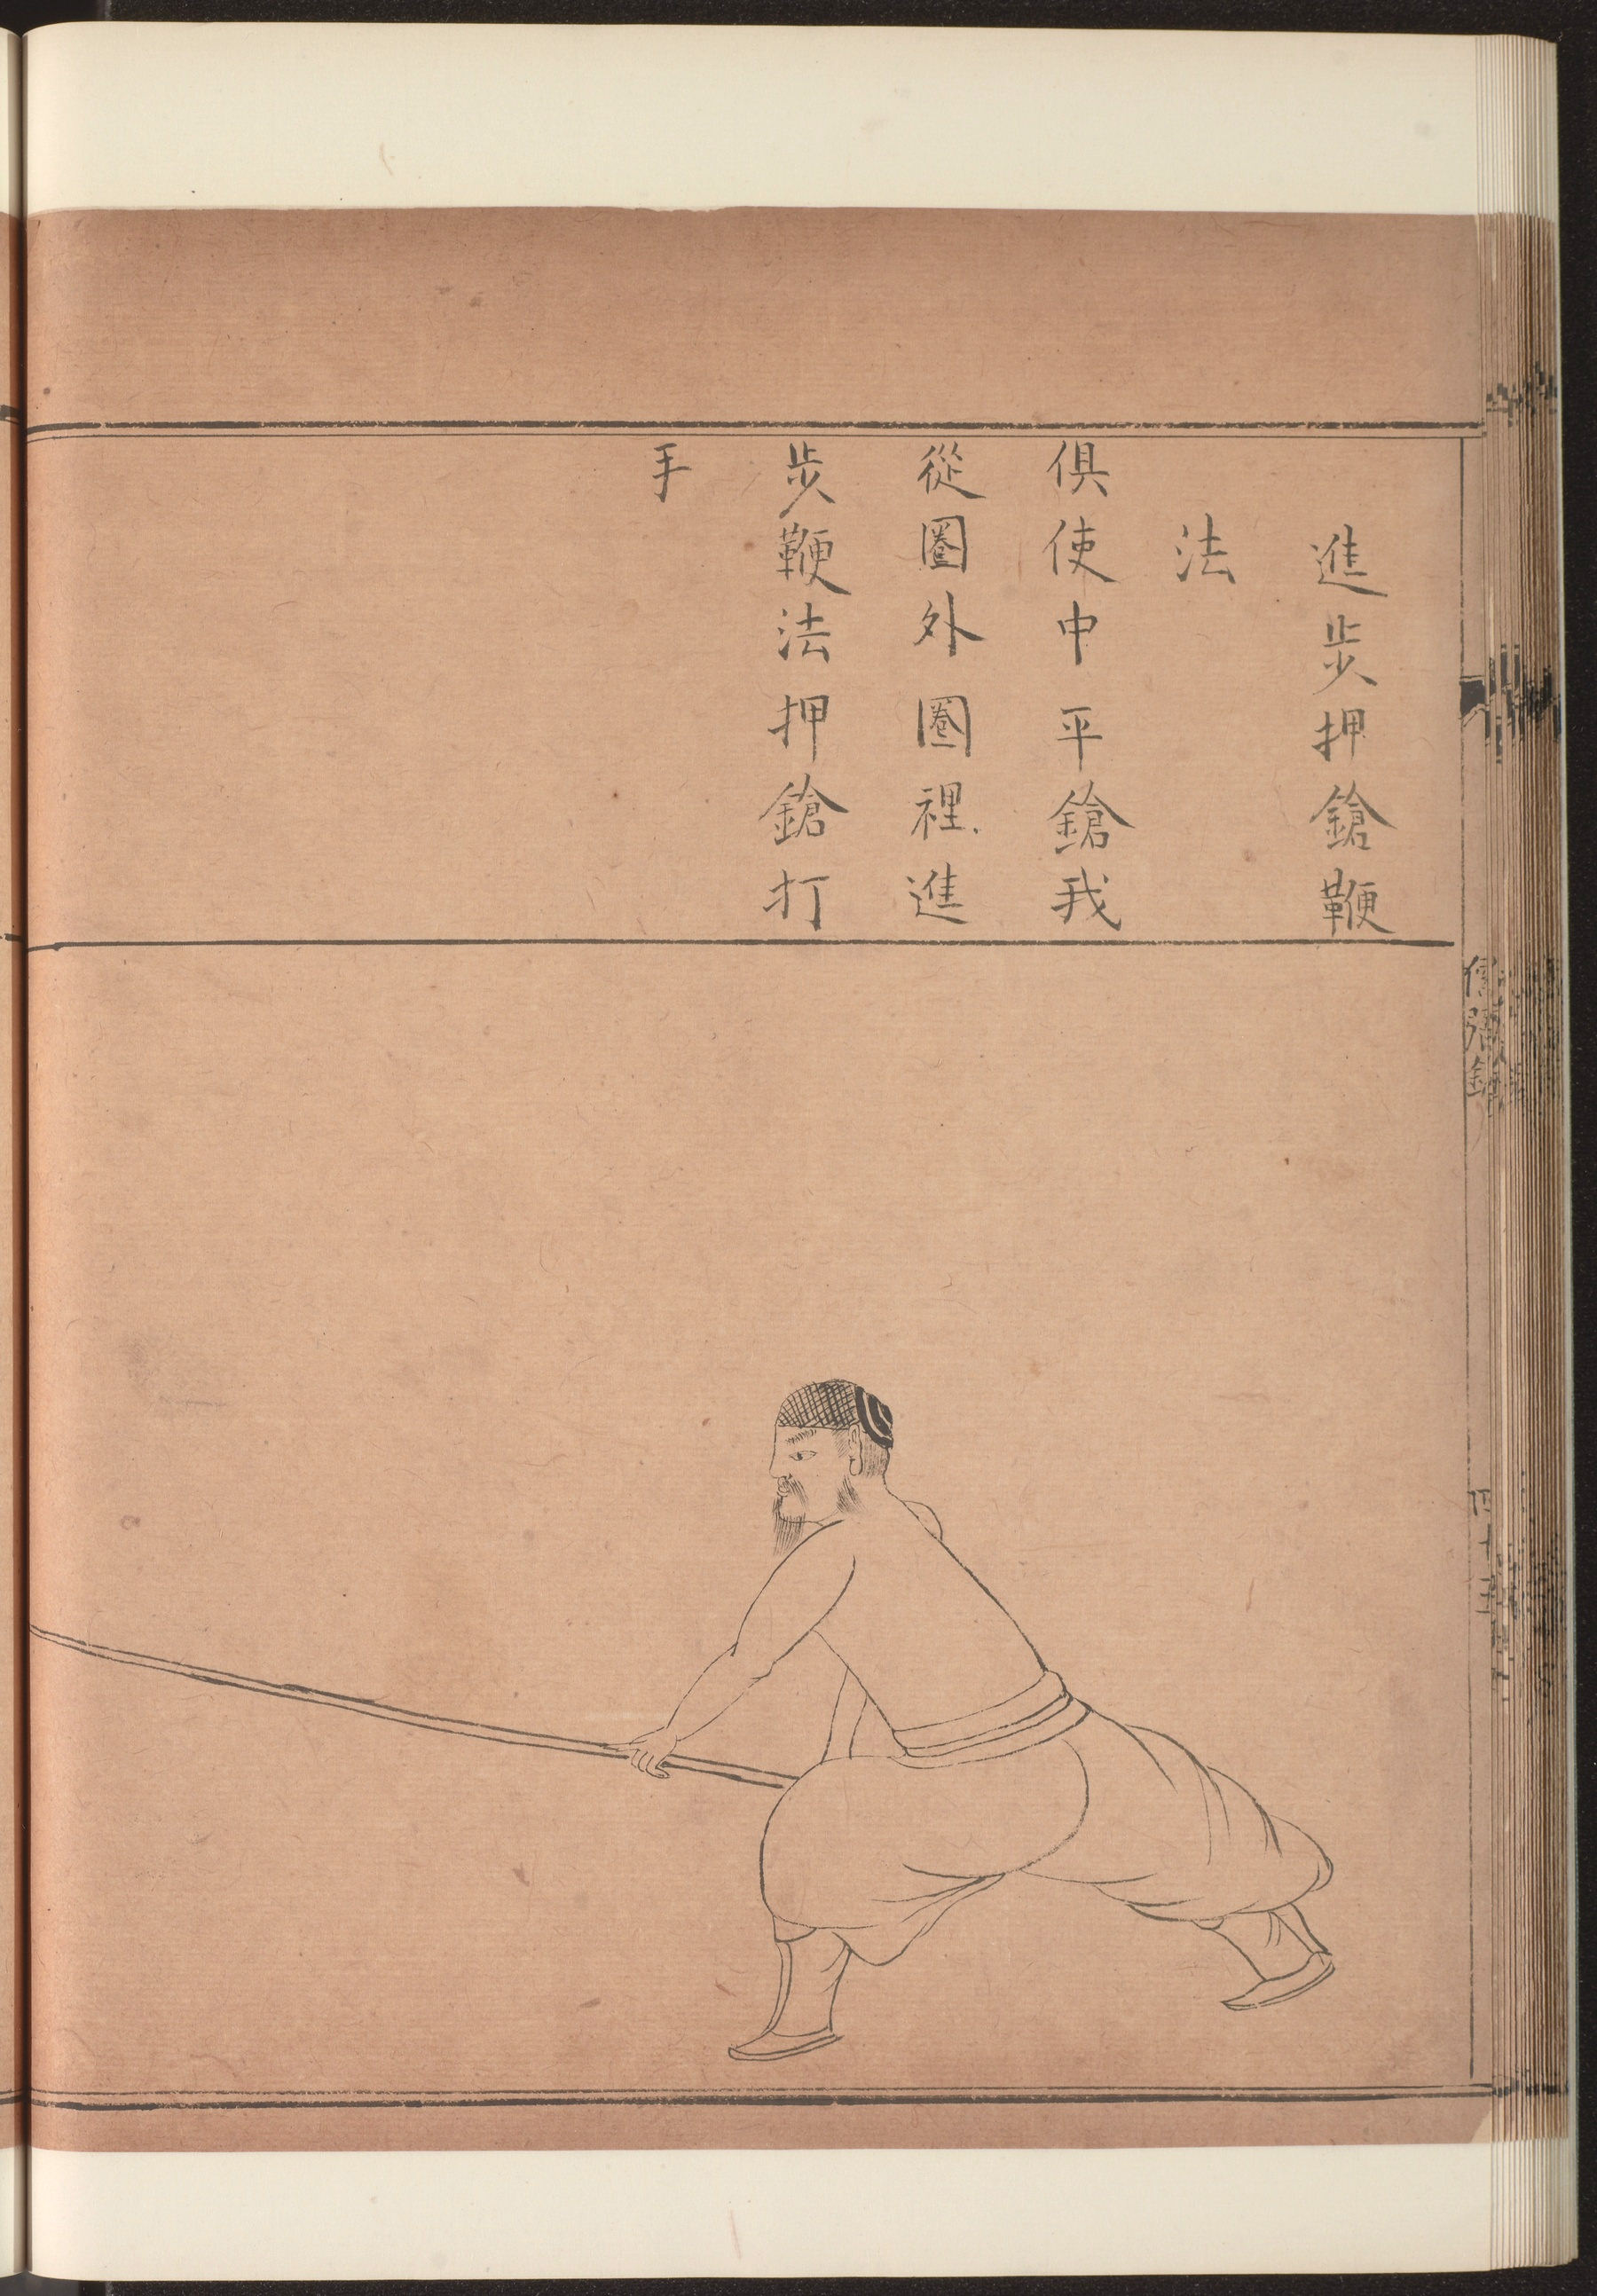 進步押鎗鞭
法
俱使中平鎗我
從圈外圈裡進
步鞭法押鎗打
手